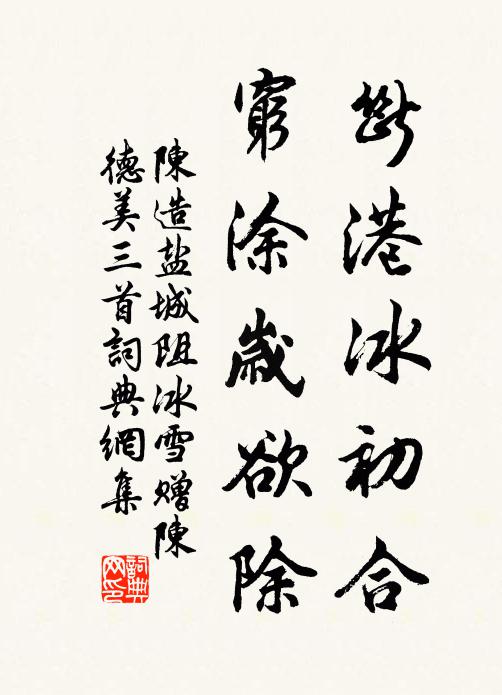 斷港冰初合
窮涂歲欲除
陳造盐城阻冰雪贈陳
德美三首詞典網集
詞典网印